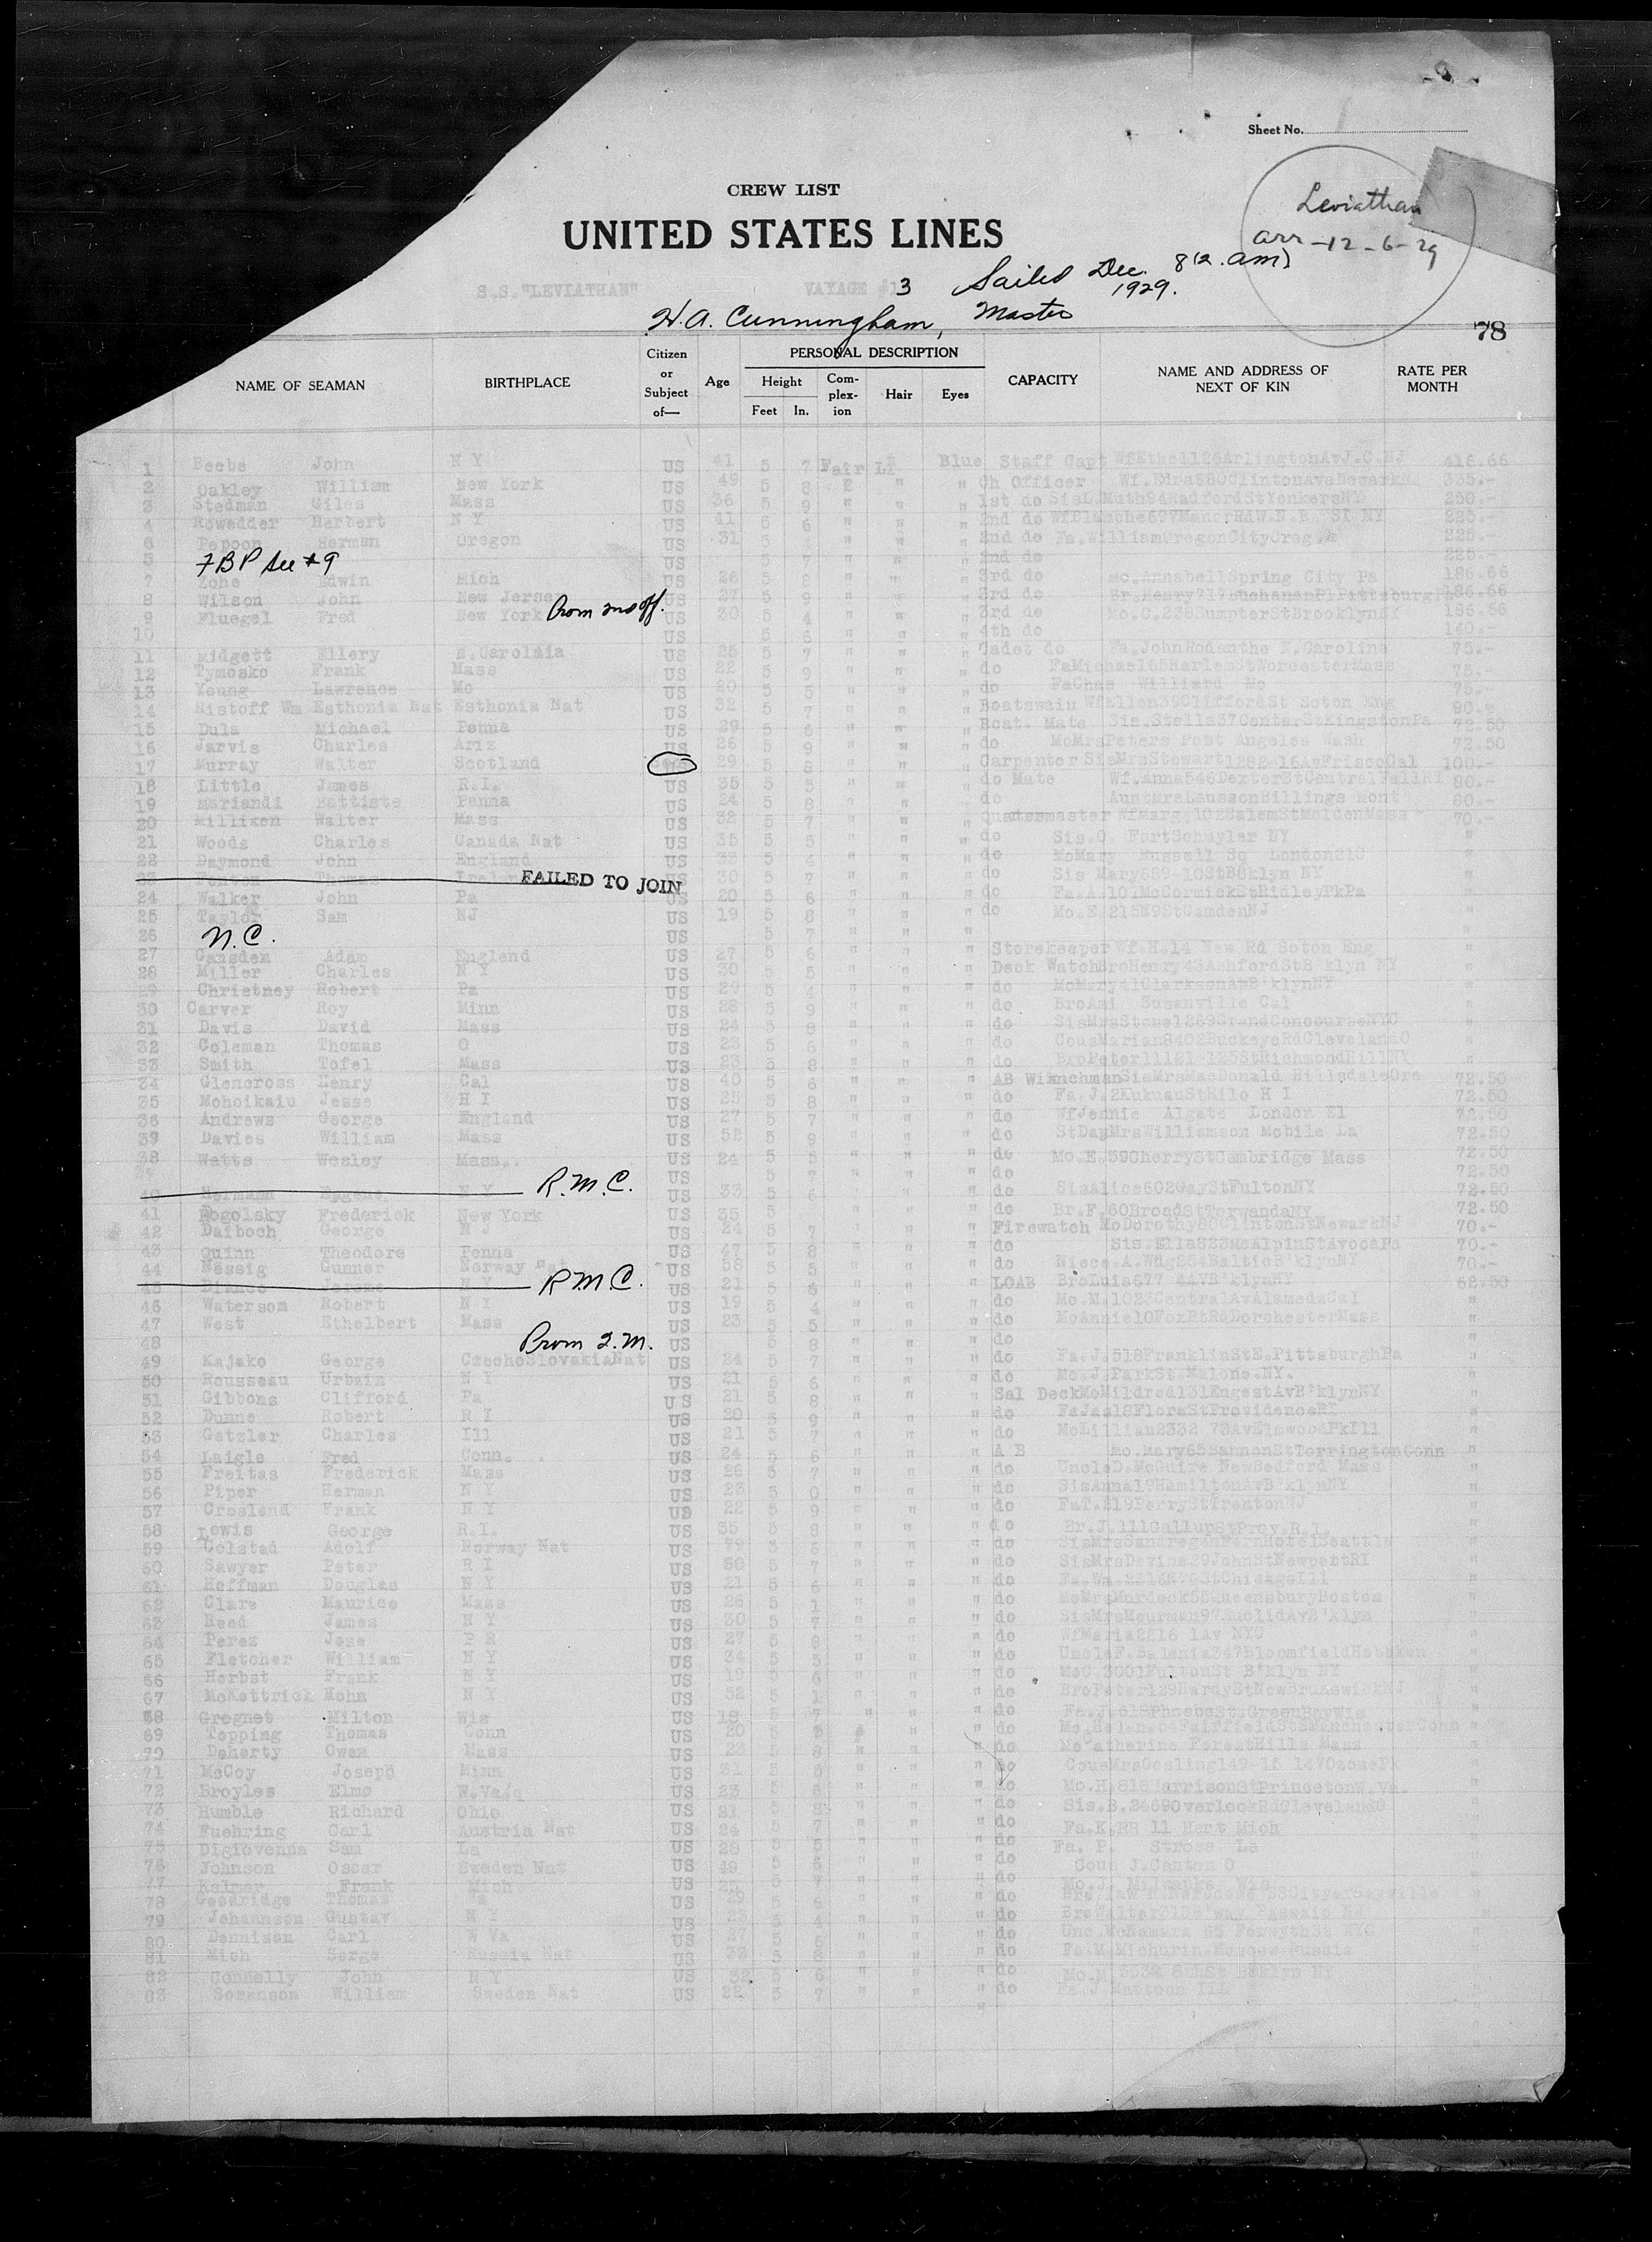 Sheet No.
Leviathan
arr-12-6-29
CREW LIST
UNITED STATES LINES
Sailed Dec. 8 (2. am)
1929.
S.S."LEVIATHAN" VAYAGE #13
H.A. Cunningham, Master
78
NAME OF SEAMAN BIRTHPLACE Citizen or Subject of— Age PERSONAL DESCRIPTION Height Feet In. Complexion Hair Eyes CAPACITY NAME AND ADDRESS OF NEXT OF KIN RATE PER MONTH
1 Beebe John N Y US 41 5 7 Fair Lt Blue Staff Capt WfEthel126ArlingtonAvJ.C.NJ 416.66
2 Oakley William New York US 49 5 8 " " Ch Officer 335.-
3 Stedman Giles Mass US 36 5 9 " " " 1st do SisL.Muth94RadfordStYonkersNY 250.-
4 Rowedder Herbert N Y US 41 5 6 " " " 2nd do 225.-
6 Pepoon Herman Oregon US 31 5 " " " 2nd do Fa.WilliamOregonCityOreg. 225.-
5 7BP see #9 US 5 7 " " " 2nd do 225.-
7 Zohe Edwin Mich US 26 5 8 " " " 3rd do Mo.AnnabellSpring City Pa 186.66
8 Wilson John New Jersey US 27 5 9 " " " 3rd do 186.66
9 Fluegel Fred New York Prom 2nd off. US 30 5 4 " " " 3rd do Mo.C.238SumpterStBrooklynNY 186.66
10 US 5 6 " " " 4th do 140.-
11 Midgett Ellery US 25 5 7 " " " Cadet do Fa.JohnRodanthe N.Carolina 75.-
12 Tymosko Frank Mass US 22 5 9 " " " do FaMichael65HarlemStWorcesterMass 75.-
13 Young Lawrence Mo US 20 5 5 " " " do FaChas Williard Mo 75.-
14 Ristoff Wm Esthonia Nat Esthonia Nat US 32 5 7 " " " Boatswain WfEllen39CliffordSt Soton Eng 90.-
15 Dula Michael Penna US 29 5 6 " " " Boat. Mate Sis.Stella37CenterStKingstonPa 72.50
16 Jarvis Charles Ariz US 26 5 9 " " " do MoMrsPeters Port Angeles Wash 72.50
17 Murray Walter Scotland 29 5 8 " " " Carpenter SisMrsStewart1282-16AvFriscoCal 100.-
18 Little James R.I. US 35 5 5 " " " do Mate Wf.Anna546DexterStCentralFallRI 80.-
19 Mariandi Battiste Penna US 24 5 8 " " " do 80.-
20 Milliken Walter Mass US 32 5 7 " " " Quatermaster WfMarg.102SalemStMoldenMass 70.-
21 Woods Charles Canada Nat US 35 5 5 " " " do Sis.O. FortSchuyler NY "
22 Daymond John England US 33 5 4 " " " do MoMary Russell Sq London "
23 Fenton Thomas Ireland FAILED TO JOIN US 30 5 7 " " " do "
24 Walker John Pa US 20 5 6 " " " do Fa.A.101McCormickStRidleyPkPa "
25 Taylor Sam NJ US 19 5 8 " " " do Mo.E.215N9StCamdenNJ "
26 N.C. US 5 7 " " "
27 Gamsden Adam England US 27 5 6 " " " Storekeeper Wf.H.14 New Rd Soton Eng "
28 Miller Charles N Y US 30 5 5 " " " Deck Watch BroHenry43AshfordStB'klyn NY "
29 Christney Robert Pa US 29 5 4 " " " do "
30 Carver Roy Minn US 28 5 9 " " " do BroAmi Susanville Cal "
31 Davis David Mass US 24 5 8 " " " do SisMrsStone1269GrandConcourseNYC "
32 Coleman Thomas O US 23 5 6 " " " do CousMarian8402BuckeyeRdClevelandO "
33 Smith Tofel Mass US 23 5 8 " " " do BroPeter11121-125StRichmondHillNY "
34 Glencross Henry Cal US 40 5 6 " " " AB Winchman SisMrsMacDonald HillsdaleOre 72.50
35 Mohoikaiu Jesse H I US 25 5 8 " " " do Fa.J.2KukuauStHilo H I 72.50
36 Andrews George England US 27 5 7 " " " do WfJennie Algate London El 72.50
39 Davies William Mass US 52 5 9 " " " do StDagMrsWilliamson Mobile La 72.50
38 Watts Wesley Mass. US 24 5 5 " " " do Mo.E.59CherryStCambridge Mass 72.50
US 5 7 " " " do 72.50
40 Hermann Eugene N Y R.M.C. US 33 5 6 " " " do SisAlice602GayStFultonNY 72.50
41 Rogolsky Frederick New York US 35 5 do Br.F.60BroadStTorwandaNY 72.50
42 Daiboch George N J US 24 5 7 " " " Firewatch MoDorothy80ClintonStNewarkNJ 70.-
43 Quinn Theodore Penna US 47 5 8 " " " do Sis.Ella523McAlpinStAvocaPa 70.-
44 Nessig Gunner Norway Nat US 58 5 5 " " " do 70.-
45 Bianco Jerome N Y R.M.C. US 21 5 6 " " " LOAB BroLuis577 4AVB'klynNY 62.50
46 Waterson Robert N Y US 19 5 4 " " " do Mo.M.1023CentralAvAlamedaCal "
47 West Ethelbert Mass US 23 5 5 " " " do MoAnnie10FoxPtRdDorchesterMass "
48 Prom 2.M. US 5 8 " " " do "
49 Kajako George CzechoSlovakiaNat US 24 5 7 " " " do Fa.J.518FranklinStE.PittsburghPa "
50 Rousseau Urbain N Y US 21 5 6 " " " do Mo.J.ParkSt.Malone.NY. "
51 Gibbons Clifford Pa US 21 5 8 " " " Sal Deck MoMildred131EngestAvB'klynNY "
52 Dunne Robert R I US 20 5 9 " " " do FaJas18FloraStProvidenceRI "
53 Getzler Charles Ill US 21 5 7 " " " do MoLillian2332 73AvElmwoodPkIll "
54 Laigle Fred Conn. US 24 5 6 " " " A B Mo.Mary65BannonStTorringtonConn "
55 Freitas Frederick Mass US 26 5 7 " " " do UncleD.McGuire NewBedford Mass "
56 Piper Herman N Y US 23 5 0 " " " do SisAnna19HamiltonAvB'klynNY "
57 Crosland Frank N Y US 22 5 9 " " " do FaT.219PerryStTrentonNJ "
58 Lewis George R.I. US 35 5 8 " " " do Br.J.111GallupStProv.R.I. "
59 Colstad Adolf Norway Nat US 5 " " " do "
60 Sawyer Peter R I US 5 7 " " " do SisMrsDevine29JohnStNewportRI "
61 Hoffman Douglas N Y US 21 5 6 " " " do "
62 Clare Maurice Mass US 26 5 1 " " " do MoMrsMurdock55QueensburyBoston "
63 Reed James N Y US 30 5 7 " " " do SisMrsHeurman97EuclidAvB'klyn "
64 Perez Jose P R US 27 5 8 " " " do WfMaria2216 1Av NYC "
65 Fletcher William N Y US 34 5 5 " " " do "
66 Herbst Frank N Y US 19 5 6 " " " do MoC.3001FultonSt B'klyn NY "
67 McKettrick Mohn N Y US 52 5 1 " " " do BroPeter129HardyStNewBrunswickNJ "
68 Gregnet Milton Wis US 18 5 7 " " " do Fa.J.618PhoebeSt.GreenBayWis "
69 Topping Thomas Conn US 20 5 " " do "
70 Doherty Owen Mass US 5 8 " " " do ForestHills Mass "
71 McCoy Joseph Minn US 31 5 " " " do CousMrsGosling149-15 147OzonePk "
72 Broyles Elmo W.Va. US 23 5 " " " do Mo.H.818HarrisonStPrincetonW.Va. "
73 Humble Richard Ohio US 21 5 8 " " " do Sis.B.2469OverlookRdClevelandO "
74 Fuehring Carl Austria Nat US 24 5 7 " " " do Fa.K.RR 11 Hert Mich "
75 Digiovenna Sam La US 28 5 5 " " " do Fa. P. Strose La "
76 Johnson Oscar Sweden Nat US 49 5 " " " do Cous J.Canton O "
77 Kalmer Frank Mich US 5 7 " " " do "
78 Goodridge Thomas US 29 5 6 " " " do "
79 Johannsen Gustav N Y US 23 5 4 " " " do "
80 Dennison Carl W Va US 27 5 6 " " " do "
81 Mich Serge Russia Nat US 5 8 " " " do Fa.M.Michurin Moscow Russia "
82 Connelly John N Y US 32 5 6 " " " do "
83 Sorenson William Sweden Nat US 22 5 7 " " " do "